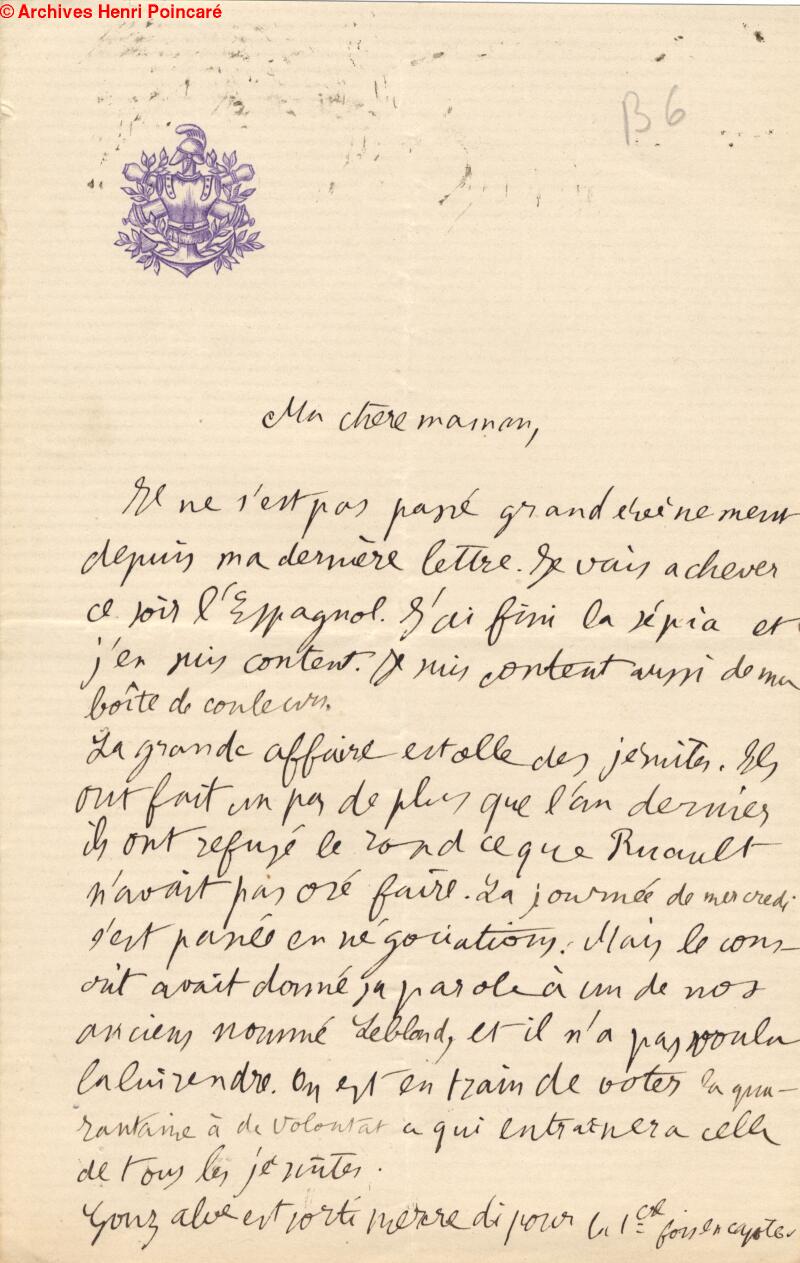 © Archives Henri Poincaré
B 6
Ma chère maman,
Il ne s'est pas passé grand évènement
depuis ma dernière lettre. Je vais achever
ce soir l'Espagnol. J'ai fini la sépia et
j'en suis content. Je suis content aussi de ma
boîte de couleurs.
La grande affaire est celle des jésuites. Ils
ont fait un pas de plus que l'an dernier
ils ont refusé le rond ce que Ruault
n'avait pas osé faire. La journée de mercredi
s'est passée en négociations. Mais le cons-
crit avait donné sa parole à un de nos
anciens nommé Leblond, et il n'a pas voulu
la lui rendre. On est en train de voter la qua-
rantaine à de Volontat ce qui entraînera celle
de tous les jésuites.
Gonzalve est sorti mercredi pour la 1ère fois en